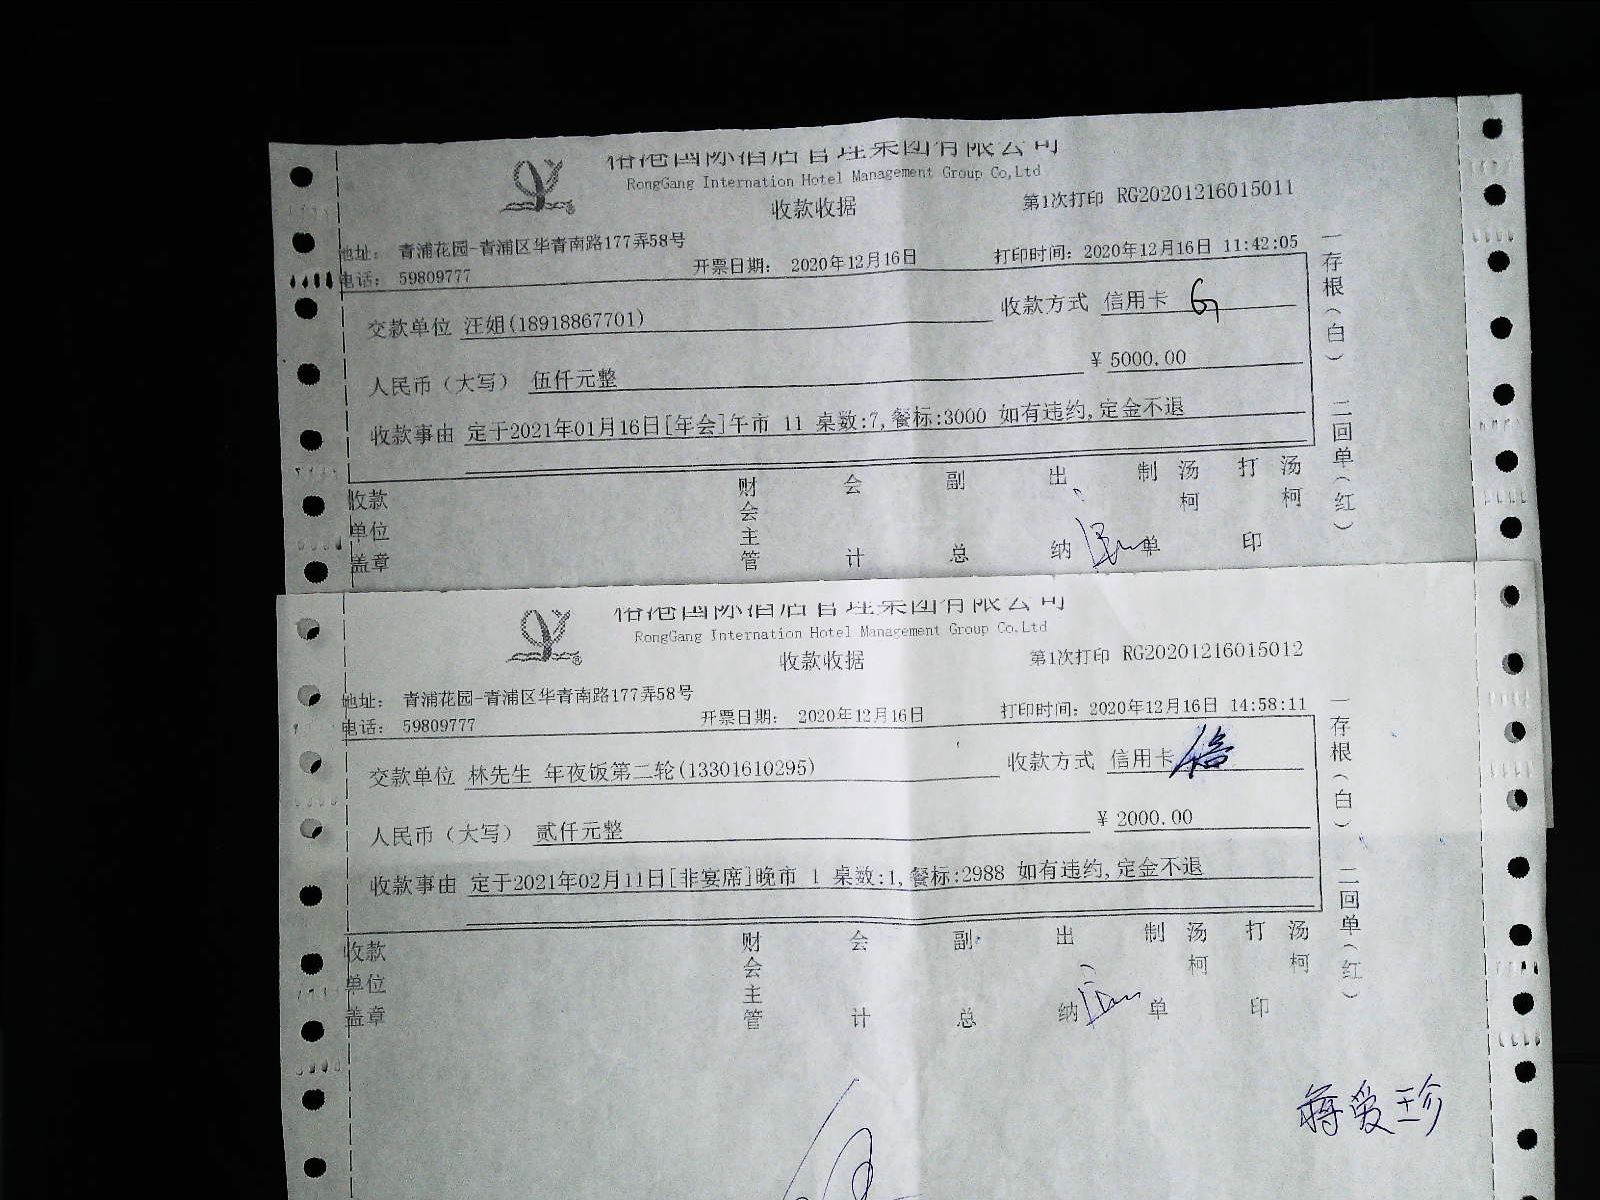 国际酒店管理集团有限公司
RongGang Internation Hotel Management Group Co,Ltd
收款收据
第1次打印 RG20201216015011
地址： 青浦花园-青浦区华青南路177弄58号
电话： 59809777
开票日期： 2020年12月16日
打印时间：2020年12月16日 11:42:05
交款单位 汪姐(18918867701)
收款方式 信用卡
人民币（大写） 伍仟元整
¥ 5000.00
收款事由 定于2021年01月16日[年会]午市 11 桌数:7,餐标:3000 如有违约,定金不退
一存根（白） 二回单（红）
收款单位盖章
财会主管
会计
副总
出纳
制单 汤柯
打印 汤柯
国际酒店管理集团有限公司
RongGang Internation Hotel Management Group Co,Ltd
收款收据
第1次打印 RG20201216015012
地址： 青浦花园-青浦区华青南路177弄58号
电话： 59809777
开票日期： 2020年12月16日
打印时间：2020年12月16日 14:58:11
交款单位 林先生 年夜饭第二轮(13301610295)
收款方式 信用卡
人民币（大写） 贰仟元整
¥ 2000.00
收款事由 定于2021年02月11日[非宴席]晚市 1 桌数:1,餐标:2988 如有违约,定金不退
一存根（白） 二回单（红）
收款单位盖章
财会主管
会计
副总
出纳
制单 汤柯
打印 汤柯
蒋爱珍